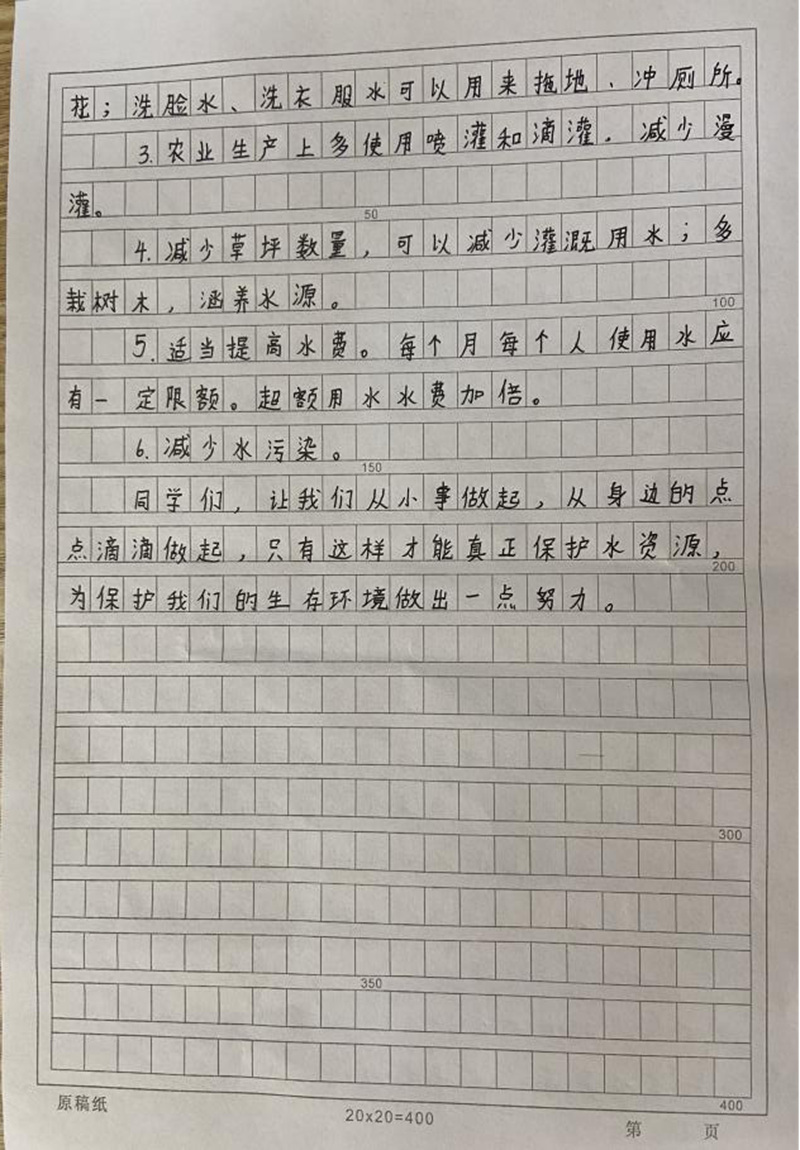 花；洗脸水、洗衣服水可以用来拖地、冲厕所。
3.农业生产上多使用喷灌和滴灌，减少漫
灌。
50
4.减少草坪数量，可以减少灌溉用水；多
栽树木，涵养水源。
100
5.适当提高水费。每个月每个人使用水应
有一定限额。超额用水水费加倍。
6.减少水污染。
150
同学们，让我们从小事做起，从身边的点
点滴滴做起，只有这样才能真正保护水资源，
200
为保护我们的生存环境做出一点努力。
300
350
400
原稿纸
20x20=400
第 页